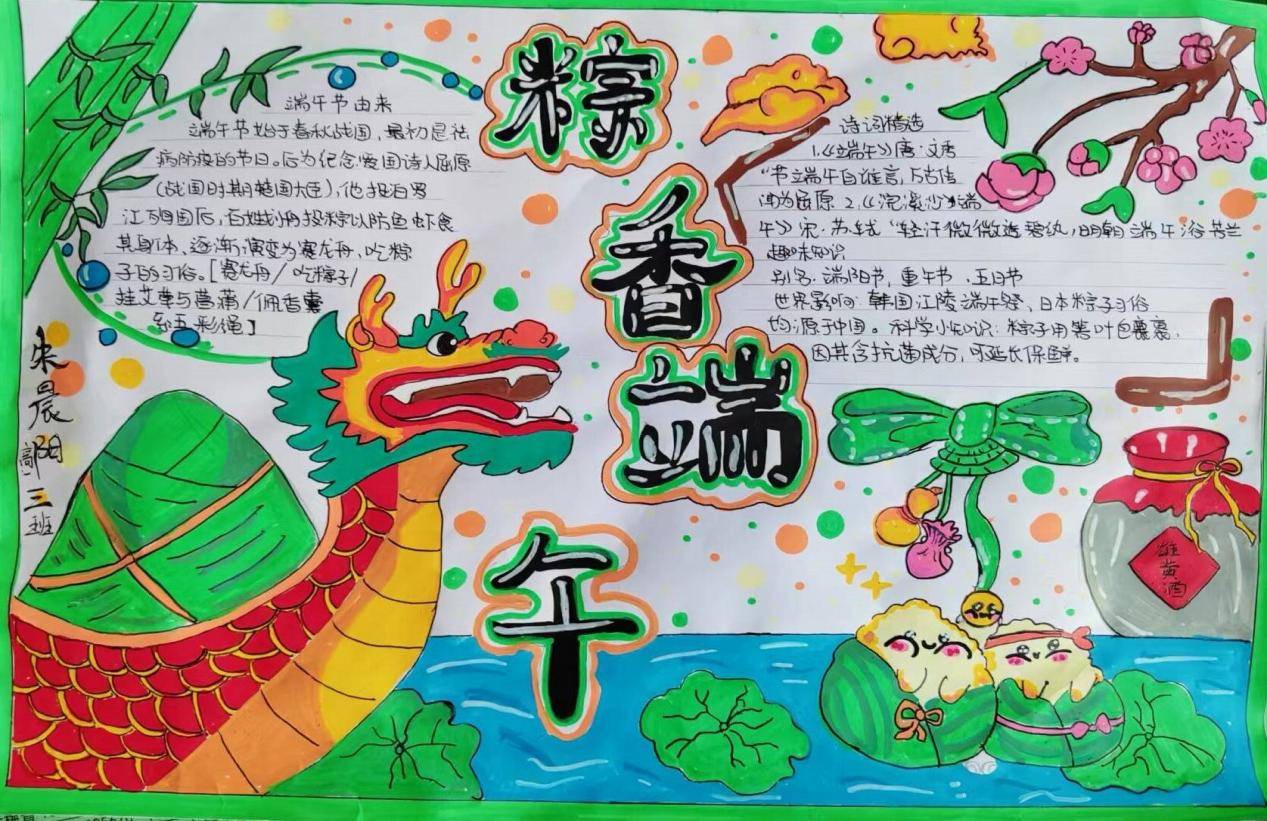 粽香端午
端午节由来
端午节始于春秋战国,最初是祛
病防疫的节日。后为纪念爱国诗人屈原
(战国时期楚国大臣),他投汨罗
江殉国后,百姓划舟投粽以防鱼虾食
其身体、逐渐演变为赛龙舟、吃粽
子的习俗。[赛龙舟/吃粽子/
挂艾草与菖蒲/佩香囊
系五彩绳]
诗词精选
1.《端午》唐·文秀
"节分端午自谁言,万古传
闻为屈原 2.《浣溪沙·端
午》宋·苏轼"轻汗微微透碧纨,明朝端午浴芳兰
趣味知识
别名:端阳节,重午节、五月节
世界影响:韩国江陵端午祭、日本粽子习俗
均源于中国。科学小知识:粽子用箬叶包裹,
因其含抗菌成分,可延长保鲜。
朱晨阳
三班
雄黄酒